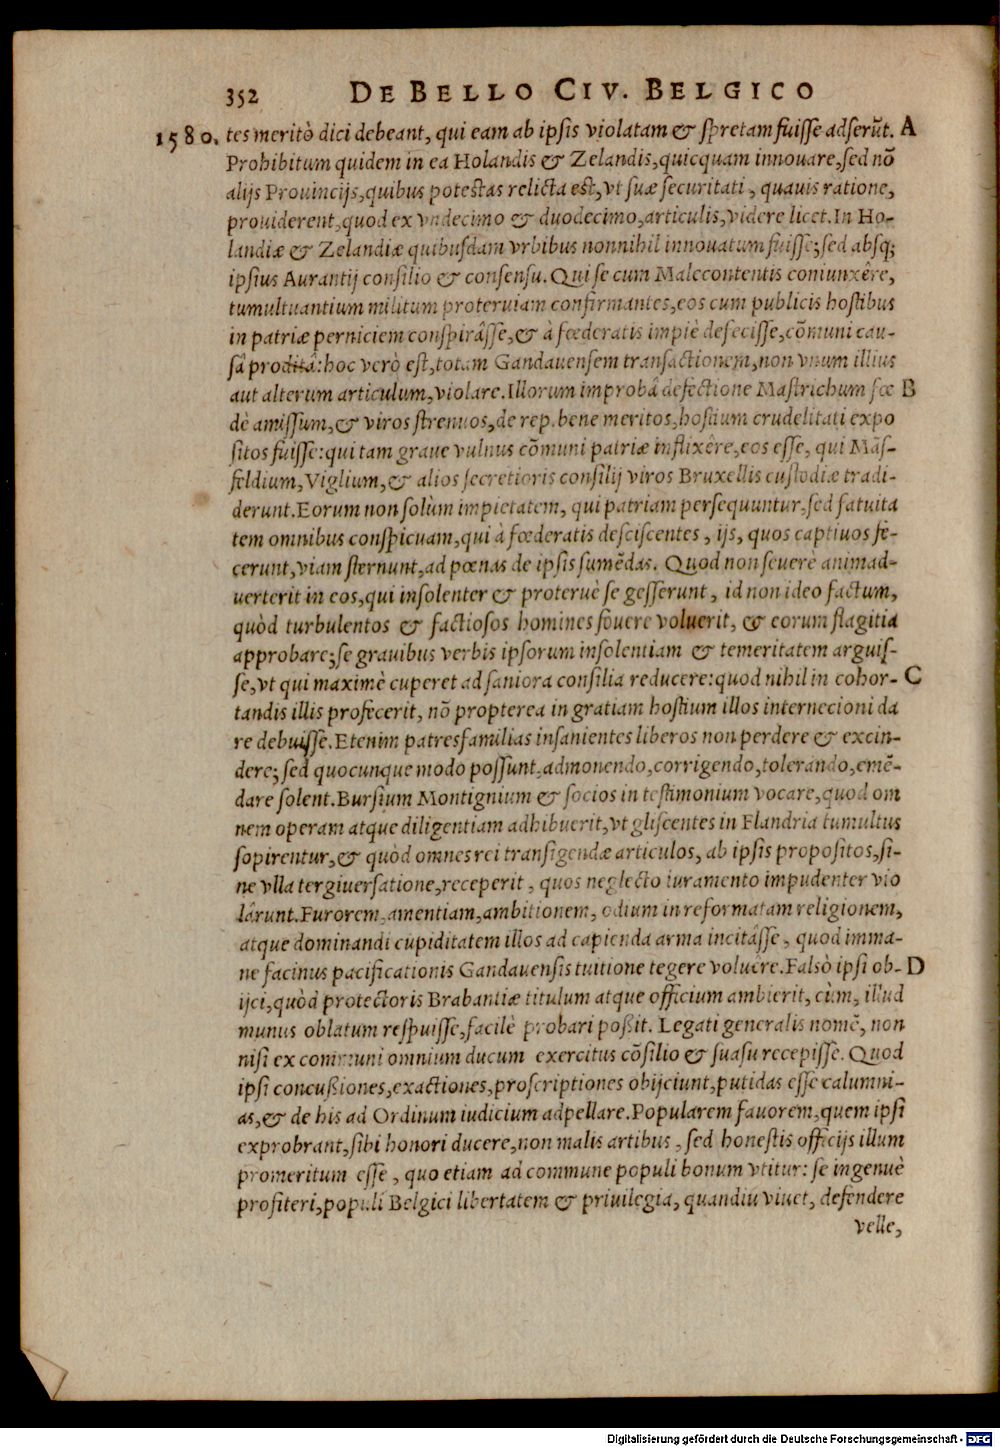 352 DE BELLO CIV. BELGICO
1580. tes meritò dici debeant, qui eam ab ipsis violatam & spretam fuisse adserũt. A
Prohibitum quidem in ea Holandis & Zelandis, quicquam innouare, sed nõ
alijs Prouincijs, quibus potestas relicta est, vt suæ securitati, quauis ratione,
prouiderent, quod ex vndecimo & duodecimo, articulis, videre licet. In Ho-
landiæ & Zelandiæ quibusdam vrbibus nonnihil innouatum fuisse; sed absq;
ipsius Aurantij consilio & consensu. Qui se cum Malecontentis coniunxêre,
tumultuantium militum proteruiam confirmantes, eos cum publicis hostibus
in patriæ perniciem conspirâsse, & à fœderatis impiè defecisse, cõmuni cau-
sâ proditâ: hoc verò est, totam Gandauensem transactionem, non vnum illius
aut alterum articulum, violare. Illorum improbâ defectione Mastrichum fœ B
dè amissum, & viros strenuos, de rep. bene meritos, hostium crudelitati expo
sitos fuisse: qui tam graue vulnus cõmuni patriæ inflixêre, eos esse, qui Mãs-
feldium, Viglium, & alios secretioris consilij viros Bruxellis custodiæ tradi-
derunt. Eorum non solùm impietatem, qui patriam persequuntur, sed fatuita
tem omnibus conspicuam, qui à fœderatis desciscentes, ijs, quos captiuos fe-
cerunt, viam sternunt, ad pœnas de ipsis sumẽdas. Quod non seuerè animad-
uerterit in eos, qui insolenter & proteruè se gesserunt, id non ideo factum,
quòd turbulentos & factiosos homines fouere voluerit, & eorum flagitia
approbare; se grauibus verbis ipsorum insolentiam & temeritatem arguis-
se, vt qui maximè cuperet ad saniora consilia reducere: quod nihil in cohor- C
tandis illis profecerit, nõ propterea in gratiam hostium illos internecioni da
re debuisse. Etenim patresfamilias insanientes liberos non perdere & excin-
dere; sed quocunque modo possunt, admonendo, corrigendo, tolerando, emẽ-
dare solent. Bursium Montignium & socios in testimonium vocare, quod om
nem operam atque diligentiam adhibuerit, vt gliscentes in Flandria tumultus
sopirentur, & quòd omnes rei transigendæ articulos, ab ipsis propositos, si-
ne vlla tergiuersatione, receperit, quos neglecto iuramento impudenter vio
lârunt. Furorem, amentiam, ambitionem, odium in reformatam religionem,
atque dominandi cupiditatem illos ad capienda arma incitâsse, quod imma-
ne facinus pacificationis Gandauensis tuitione tegere voluêre. Falsò ipsi ob- D
ijci, quòd protectoris Brabantiæ titulum atque officium ambierit, cùm, illud
munus oblatum respuisse, facilè probari poßit. Legati generalis nomẽ, non
nisi ex communi omnium ducum exercitus cõsilio & suasu recepisse. Quod
ipsi concußiones, exactiones, proscriptiones obijciunt, putidas esse calumni-
as, & de his ad Ordinum iudicium adpellare. Popularem fauorem, quem ipsi
exprobrant, sibi honori ducere, non malis artibus, sed honestis officijs illum
promeritum esse, quo etiam ad commune populi bonum vtitur: se ingenuè
profiteri, populi Belgici libertatem & priuilegia, quandiu viuet, defendere
velle,
Digitalisierung gefördert durch die Deutsche Forschungsgemeinschaft - DFG